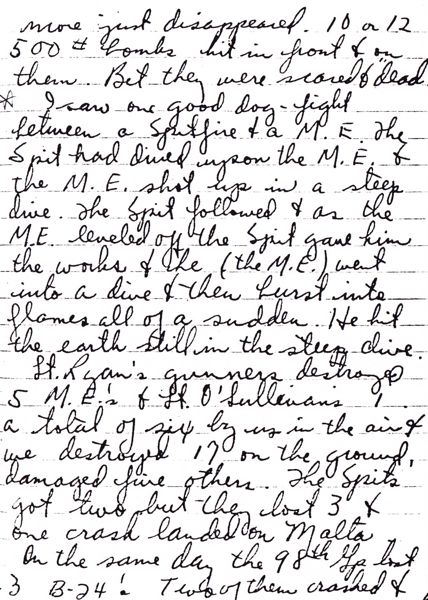 more just disappeared. 10 or 12
500 # bombs hit in front & on
them. Bet they were scared & dead.
* I saw one good dog-fight
between a Spitfire & a M.E. The
Spit had dived upson the M.E. &
the M.E. shot up in a steep
dive. The Spit followed & as the
M.E. leveled off the Spit gave him
the works & the (the M.E.) went
into a dive & then burst into
flames all of a sudden. He hit
the earth still in the steep dive.
Lt. Ryan's gunners destroyed
5 M.E.'s & Lt. O'Sullevans 1
a total of six by us in the air &
we destroyed 17 on the ground,
damaged five others. The Spits
got two but they lost 3 &
one crash landed on Malta.
On the same day the 98th Gp lost
3 B-24's Two of them crashed &